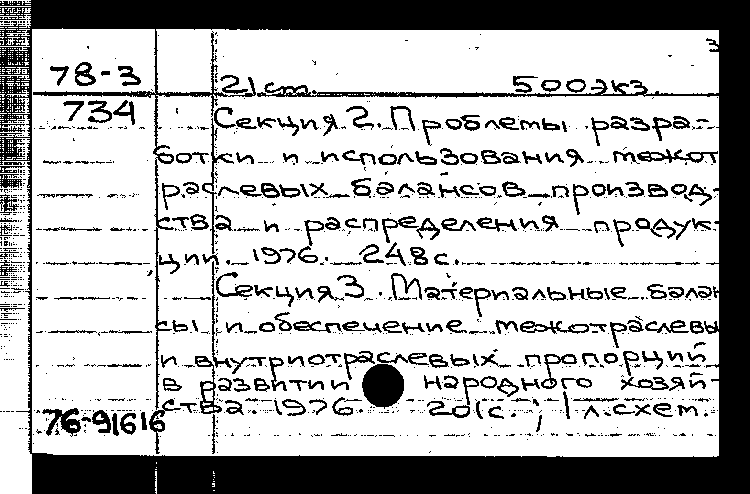 3
78-3 21 cm. 500экз.
734 Секция 2. Проблемы разра-
ботки и использования межот
раслевых балансов производ-
ства и распределения продук-
ции. 1976. 248 с.
Секция 3. Материальные балан
сы и обеспечение межотраслевы
и внутриотраслевых пропорций
в развитии народного хозяй-
ства. 1976. 201с.; 1 л.схем.
76-91616